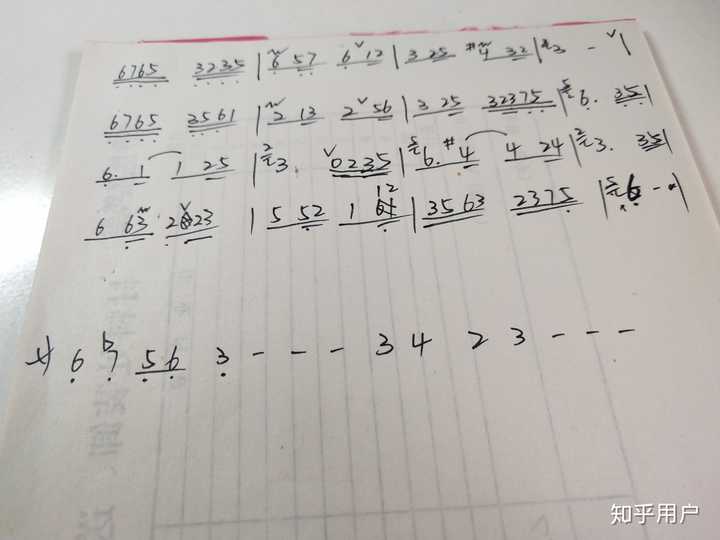 6765 3235 | 6 57 6 12 | 3 25 #4 32 | 23 - |
6765 3561 | 2 13 2 56 | 3 25 32375 | 56. 35 |
6. 1 1 25 | 23. 0235 | 56. #4 4 24 | 23. 35 |
6 63 2 23 | 5 52 1 12 | 3563 2375 | 56 - - |
6 7 56 3 - - - 3 4 2 3 - - -
知乎用户